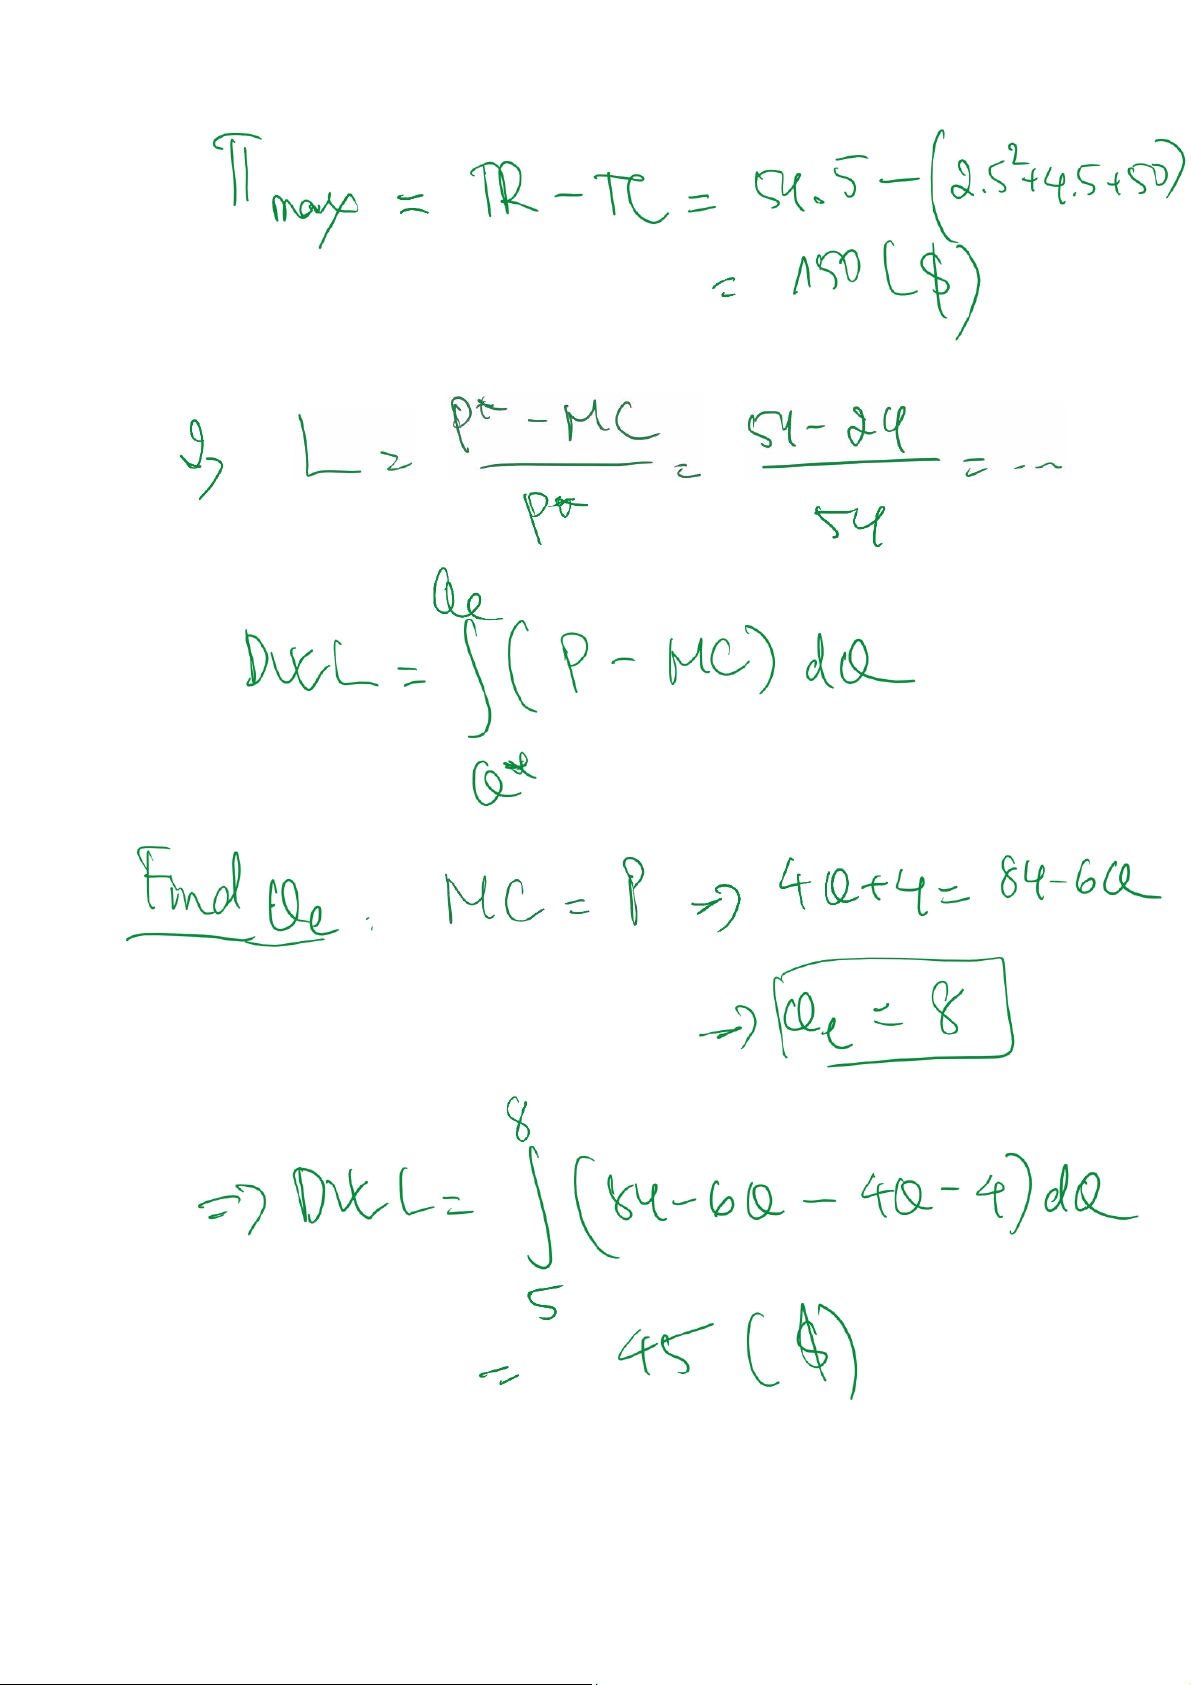 π max = TR - TC = 54.5 - (2.5² + 4.5 + 50)
= 150 ($)
2, L = (P* - MC) / P* = (54 - 24) / 54 = ...
DWL = ∫_{Q*}^{Qe} (P - MC) dQ
Find Qe : MC = P → 4Q + 4 = 84 - 6Q
→ Qe = 8
⇒ DWL = ∫_5^8 (84 - 6Q - 4Q - 4) dQ
= 45 ($)